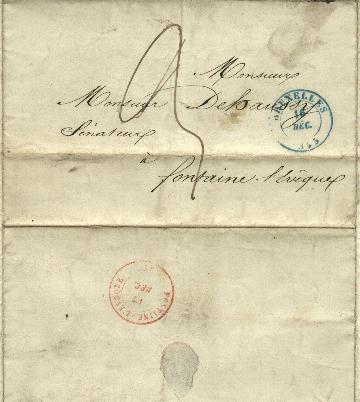 Monsieur
Monsieur Dehaussy
Sénateur
à
fontaine-l'Evêque
BRUXELLES
16
DEC.
1845
FONTAINE-L'EVEQUE
17
DEC.